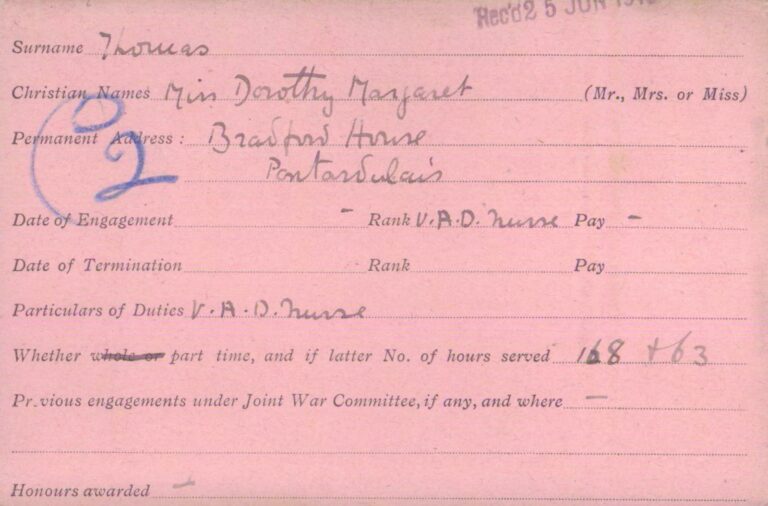 Rec'd 25 JUN
Surname Thomas
Christian Names Miss Dorothy Margaret (Mr., Mrs. or Miss)
Permanent Address : Bradford House
Pontardulais
Date of Engagement - Rank V.A.D. nurse Pay -
Date of Termination Rank Pay
Particulars of Duties V.A.D. nurse
Whether whole or part time, and if latter No. of hours served 168 +63
Previous engagements under Joint War Committee, if any, and where -
Honours awarded -